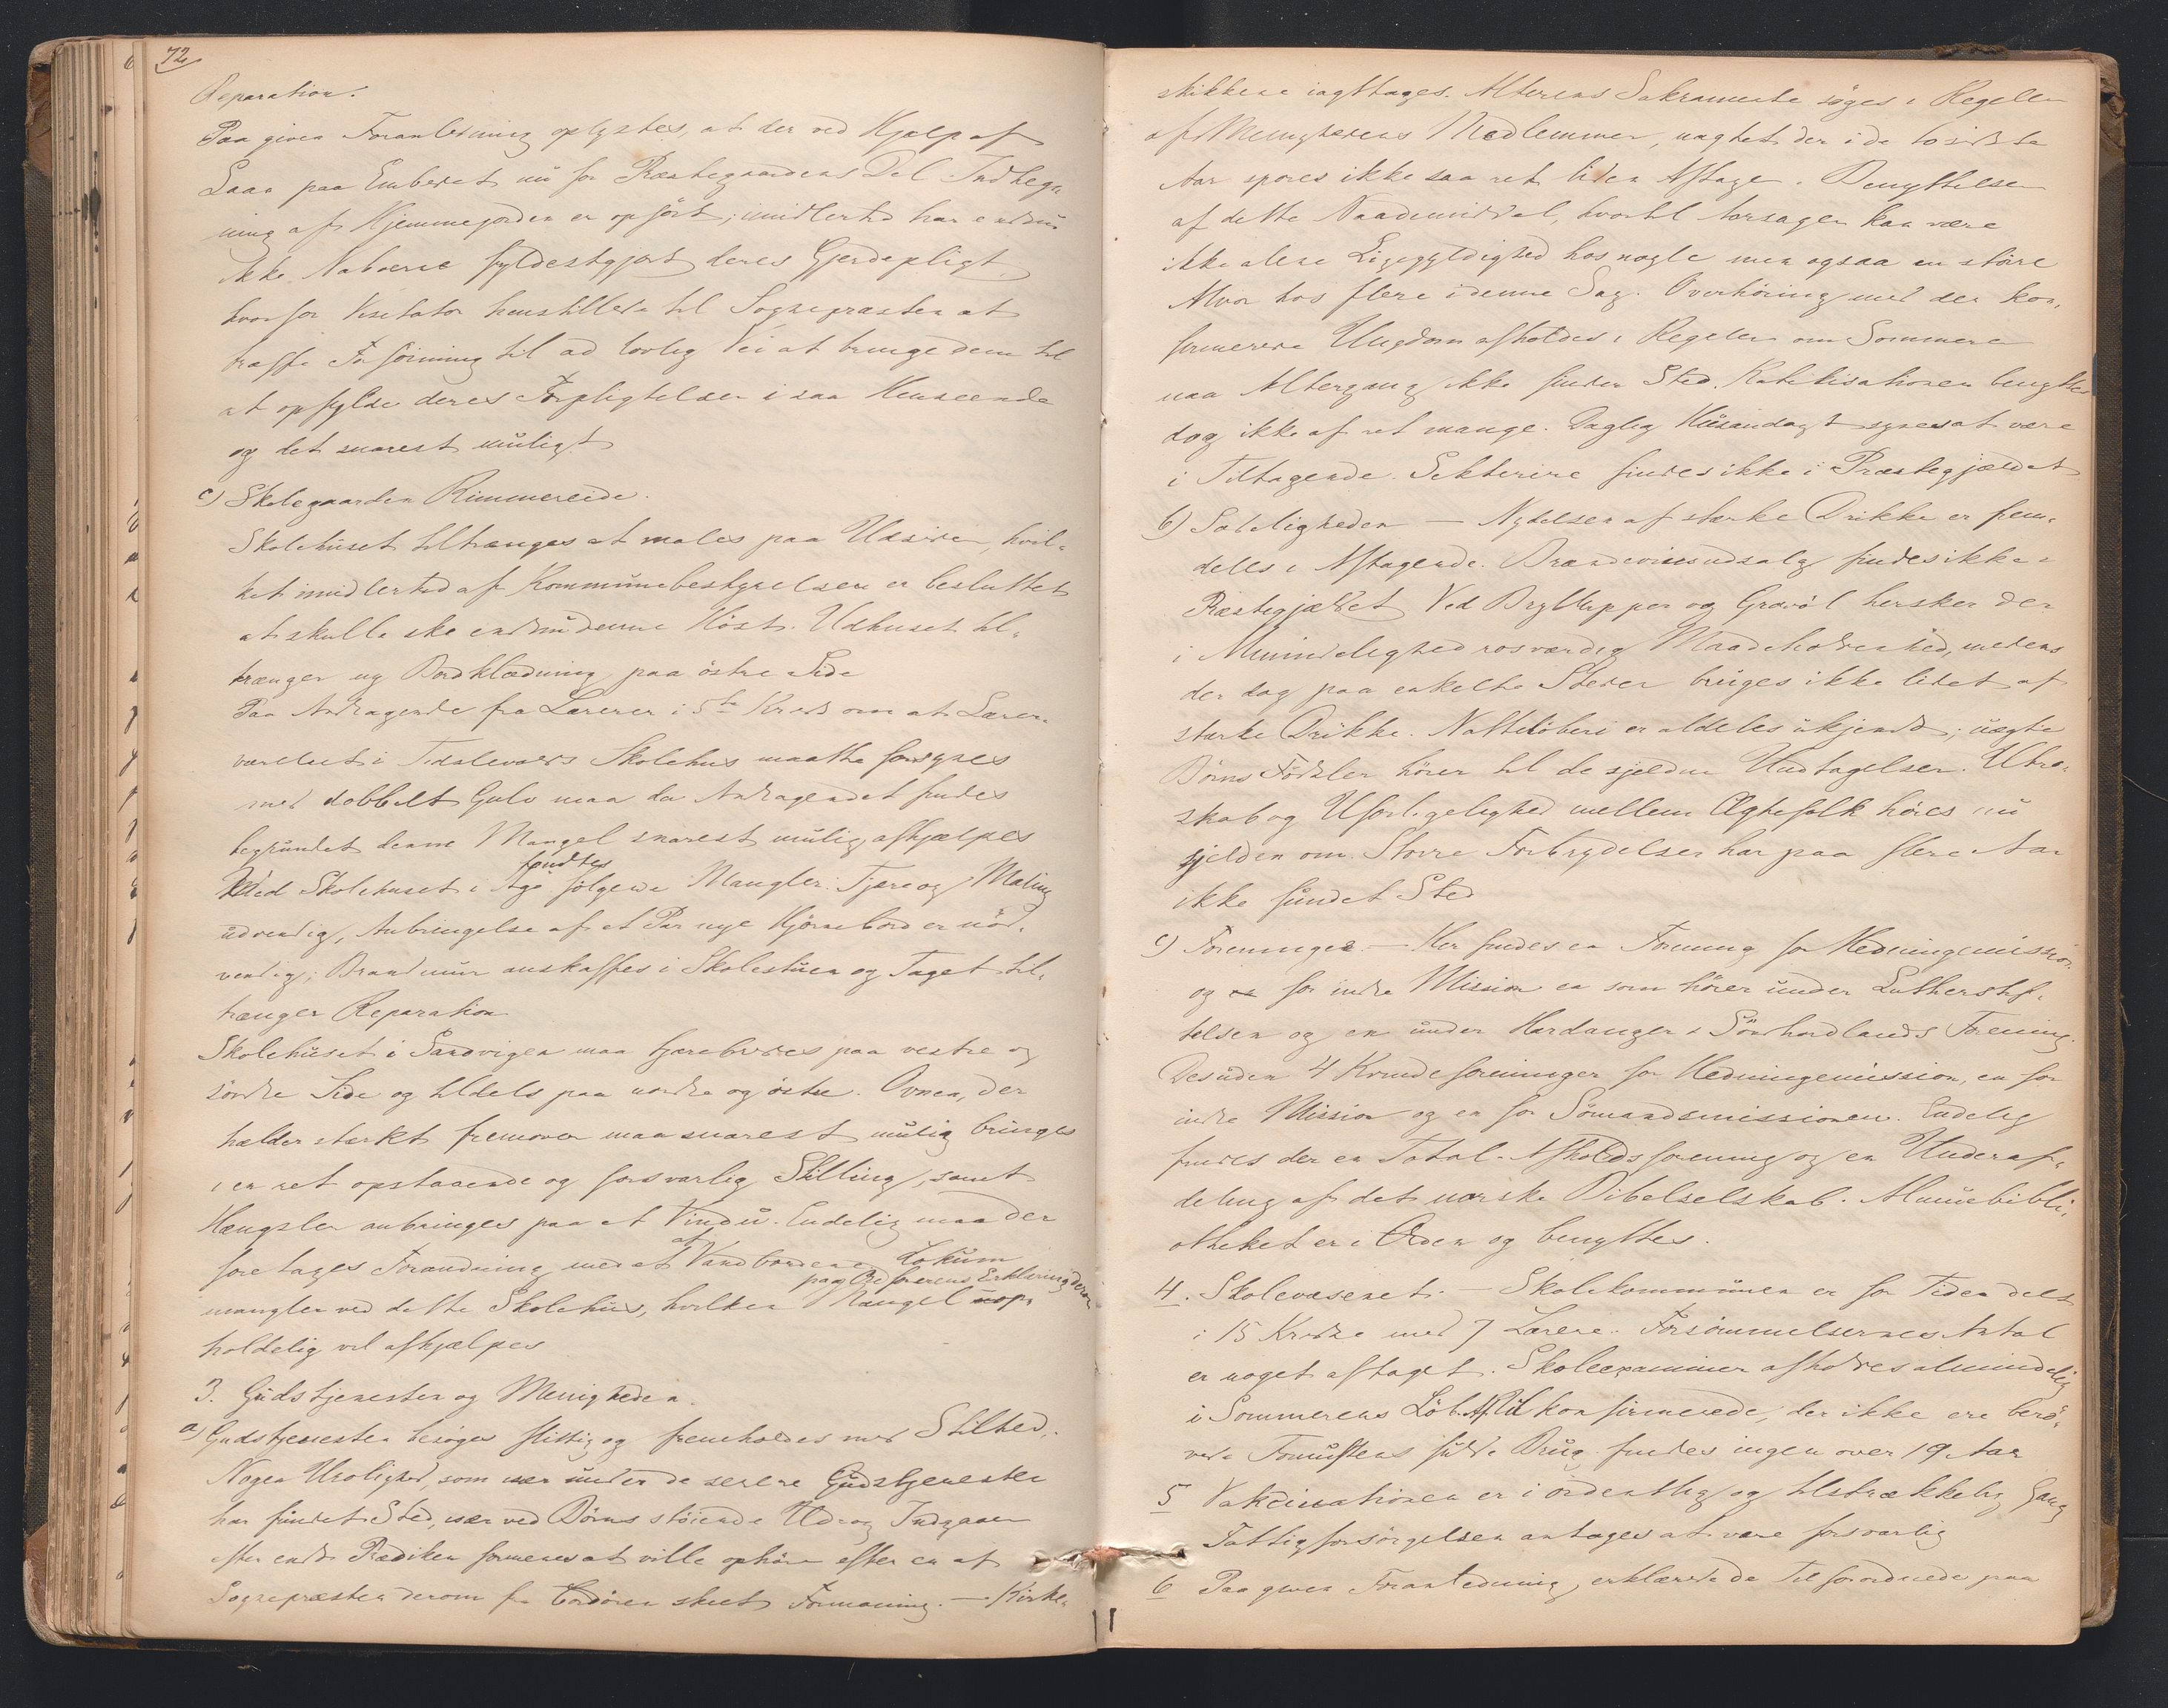 72
Reparation.
Paa given Foranledning oplystes, at der ved Hjælp af
Laan paa Embedet nu for Præstegaardens Del Indhegn-
ning af Hjemmejorden er opført; imidlertid har endnu
ikke Naboerne fyldestgjort deres Gjerdepligt
hvorfor Visitator henstillede til Sognepræsten at
træffe Føining til ad lovlig Vei at bringe dem til
at opfylde deres Forpligtelser i saa Henseende
og det snarest muligt
c) Skolegaarden Rimmereide.
Skolehuset tiltrænges at males paa Udsiden, hvil-
ket imidlertid af Kommunebestyrelsen er besluttet
at skulle ske endnu denne Høst. Udhuset til-
trænger ny Bordklædning paa østre Side
Paa Andragende fra Læreren i 5te Kreds om at Lærer-
værelset i Skolehus maatte forsynes
med dobbelt Gulv maa da Andragendet findes
begrundet denne Mangel snarest mulig afhjælpes
Ved Skolehuset i Age fandtes følgende Mangler: Tjære og Maling
udvendig, Anbringelse af et Par nye Hjørnebord er nød-
vendig; Brandmur anskaffes i Skolestuen og Taget til-
trænger Reparation
Skolehuset i Sandvigen maa tjærebredes paa vestre og
søndre Side og tildels paa nordre og østre. Ovnen, der
hælder stærkt fremover maa snarest mulig bringes
i en ret opstaaende og forsvarlig Stilling, samt
Hængsler anbringes paa et Vindu. Endelig maa der
foretages Forandring med et af Vandbordene. Lokum
mangler ved dette Skolehus, hvilken Mangel paa Ordførerens Erklæring derom uop-
holdelig vil afhjælpes
3. Gudstjenesten og Menigheden.
a) Gudstjenesten besøges flittig og fremholdes med Stilhed.
Nogen Urolighed, som især under de senere Gudstjenester
har fundet Sted, især ved Børns støiende Ud og Indgaaen
efter endt Prædiken formenes at ville ophøre efter en af
Sognepræsten derom fra Cordøren skeet Formaning. — Kirke-
skikkene iagttages. Alterens Sakramente søges i Regelen
af Menighedens Medlemmer, uagtet der i de to sidste
Aar spores ikke saa ret liden Aftage i Benyttelsen
af dette Naademiddel, hvortil Aarsagen kan være
ikke alene Ligegyldighed hos nogle men ogsaa en større
Alvor hos flere i denne Sag. Overhøring med den kon-
firmerede Ungdom afholdes i Regelen om Sommeren
naar Altergang ikke finder Sted. Katekisationen benyttes
dog ikke af ret mange. Daglig Husandagt synes at være
i Tiltagende. Sekterere findes ikke i Præstegjældet
b) Sædeligheden — Nydelsen af stærke Drikke er frem-
deles i Aftagende. Brændevinsudsalg findes ikke i
Præstegjældet. Ved Brylluper og Gravøl hersker der
i Almindelighed rosværdig Maadeholdenhed, medens
der dog paa enkelte Steder bruges ikke lidet af
stærke Drikke. Natteløberi er aldeles ukjendt; uægte
Børns Fødsler hører til de sjeldne Undtagelser. Utro-
skab og Uforligelighed mellem Ægtefolk høres nu
sjelden om. Større Forbrydelser har paa flere Aar
ikke fundet Sted
c) Foreninger. — Her findes en Forening for Hedningemission
og for indre Mission en som hører under Lutherstif-
telsen og en under Hardanger & Søndhordlands Forening.
Desuden 4 Kvindeforeninger for Hedningemission, en for
indre Mission og en for Sømandsmissionen. Endelig
findes der en Total-Afholdsforening og en Underaf-
deling af det norske Bibelselskab. Almuebibli-
otheket er i Orden og benyttes.
4. Skolevæsenet. — Skolekommunen er for Tiden delt
i 15 Kredse med 7 Lærere. Forsømmelsernes Antal
er noget aftaget. Skoleexaminer afholdes almindelig
i Sommerens Løb. Af Ukonfirmerede, der ikke ere berø-
vede Fornuftens fulde Brug findes ingen over 19 Aar
5 Vakcinationen er i ordentlig og tilstrækkelig Gang
Fattigforsørgelsen antages at være forsvarlig
6 Paa given Foranledning, erklærede de Tilforordnede paa